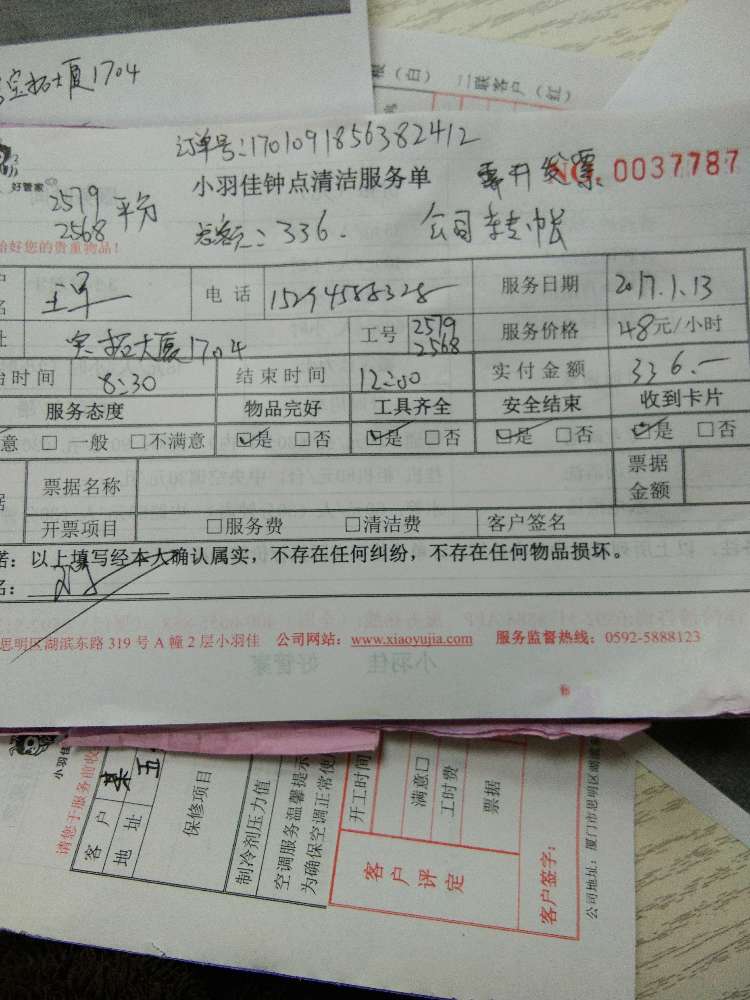 宝拓大厦1704
板（白） 二联客户（红）
订单号:1701091856382412
好管家
小羽佳钟点清洁服务单 需开发票 NO. 0037787
2579
2568 平分
总客元:336. 公司转帐
好您的贵重物品!
名 电话 服务日期 2017.1.13
址 宝拓大厦1704 工号 2579 2568 服务价格 48元/小时
始时间 8:30 结束时间 12:00 实付金额 336.—
服务态度 物品完好 工具齐全 安全结束 收到卡片
意 □ 一般 □不满意 ☑是 □否 ☑是 □否 ☑是 □否 ☑是 □否
据 票据名称 票据金额
开票项目 □服务费 □清洁费 客户签名
诺：以上填写经本人确认属实，不存在任何纠纷，不存在任何物品损坏。
名：
思明区湖滨东路 319 号 A 幢 2 层小羽佳 公司网站：www.xiaoyujia.com 服务监督热线：0592-5888123
小羽佳
请您于服务前收
客户
地址
保修项目
制冷剂压力值
空调服务温馨提示
为确保空调正常使
开工时间
满意□
工时费
票据
客户评定
客户签字：
公司地址：厦门市思明区湖滨